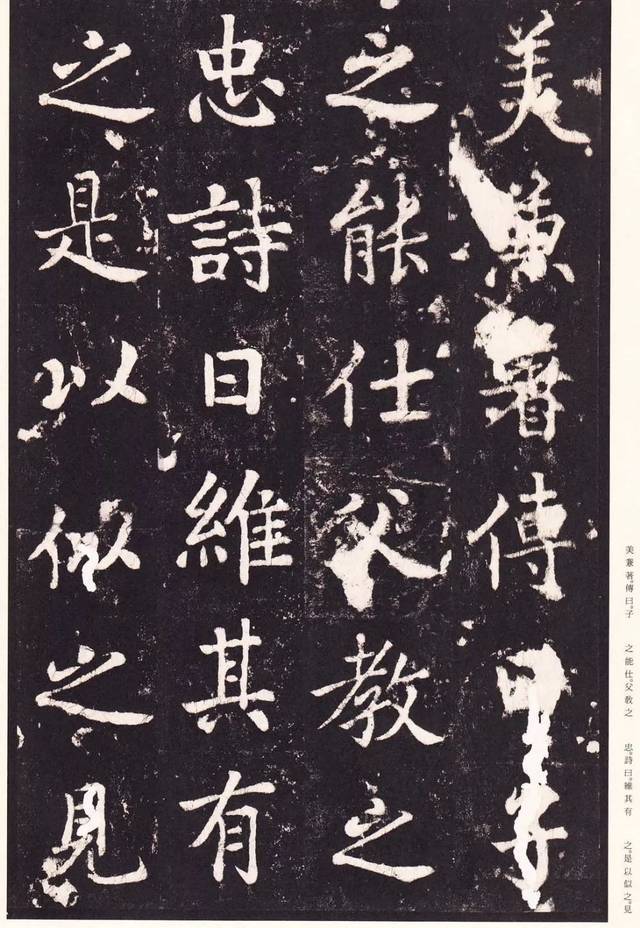 美兼著傳曰子
之能仕父教之
忠詩曰維其有
之是以似之見
美兼著。傳曰。子
之能仕。父教之
忠。詩曰。維其有
之。是以似之。見